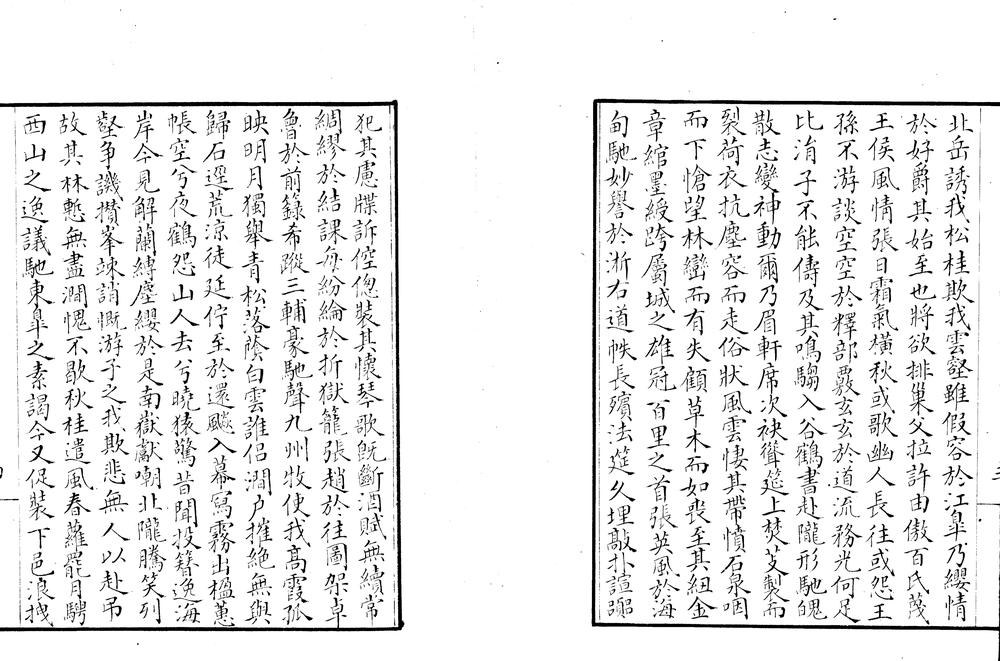 北岳誘我松桂欺我雲壑雖假容於江皐乃纓情
於好爵其始至也將欲排巢父拉許由傲百氏蔑
王侯風情張日霜氣橫秋或歌幽人長往或怨王
孫不游談空空於釋部覈玄玄於道流務光何足
比涓子不能儔及其鳴騶入谷鶴書赴隴形馳魄
散志變神動爾乃眉軒席次袂聳筵上焚芰製而
裂荷衣抗塵容而走俗狀風雲悽其帶憤石泉咽
而下愴望林巒而有失顧草木而如喪至其紐金
章綰墨綬跨屬城之雄冠百里之首張英風於海
甸馳妙譽於浙右道帙長殯法筵久埋敲扑諠囂
犯其慮牒訴倥偬裝其懷琴歌既斷酒賦無續常
綢繆於結課每紛綸於折獄籠張趙於往圖架卓
魯於前錄希蹤三輔豪馳聲九州牧使我高霞孤
映明月獨舉青松落陰白雲誰侶澗戶摧絕無與
歸石逕荒涼徒延佇至於還飈入幕寫霧出楹蕙
帳空兮夜鶴怨山人去兮曉猿驚昔聞投簪逸海
岸今見解蘭縛塵纓於是南嶽獻嘲北隴騰笑列
壑爭譏攢峯竦誚慨游子之我欺悲無人以赴弔
故其林慙無盡澗愧不歇秋桂遣風春蘿罷月騁
西山之逸議馳東皐之素謁今又促裝下邑浪拽